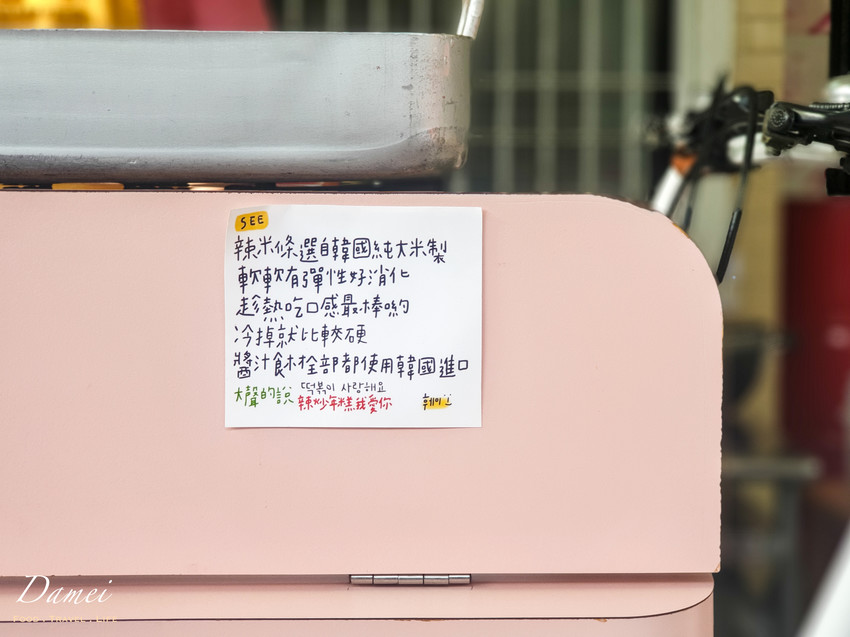 SEE
辣米條選自韓國純大米製
軟軟有彈性好消化
趁熱吃口感最棒喲
冷掉就比較硬
醬汁食材全部都使用韓國進口
大聲的說 떡볶이 사랑해요
辣炒年糕我愛你
Damei
FOOD . TRAVEL . LIFE